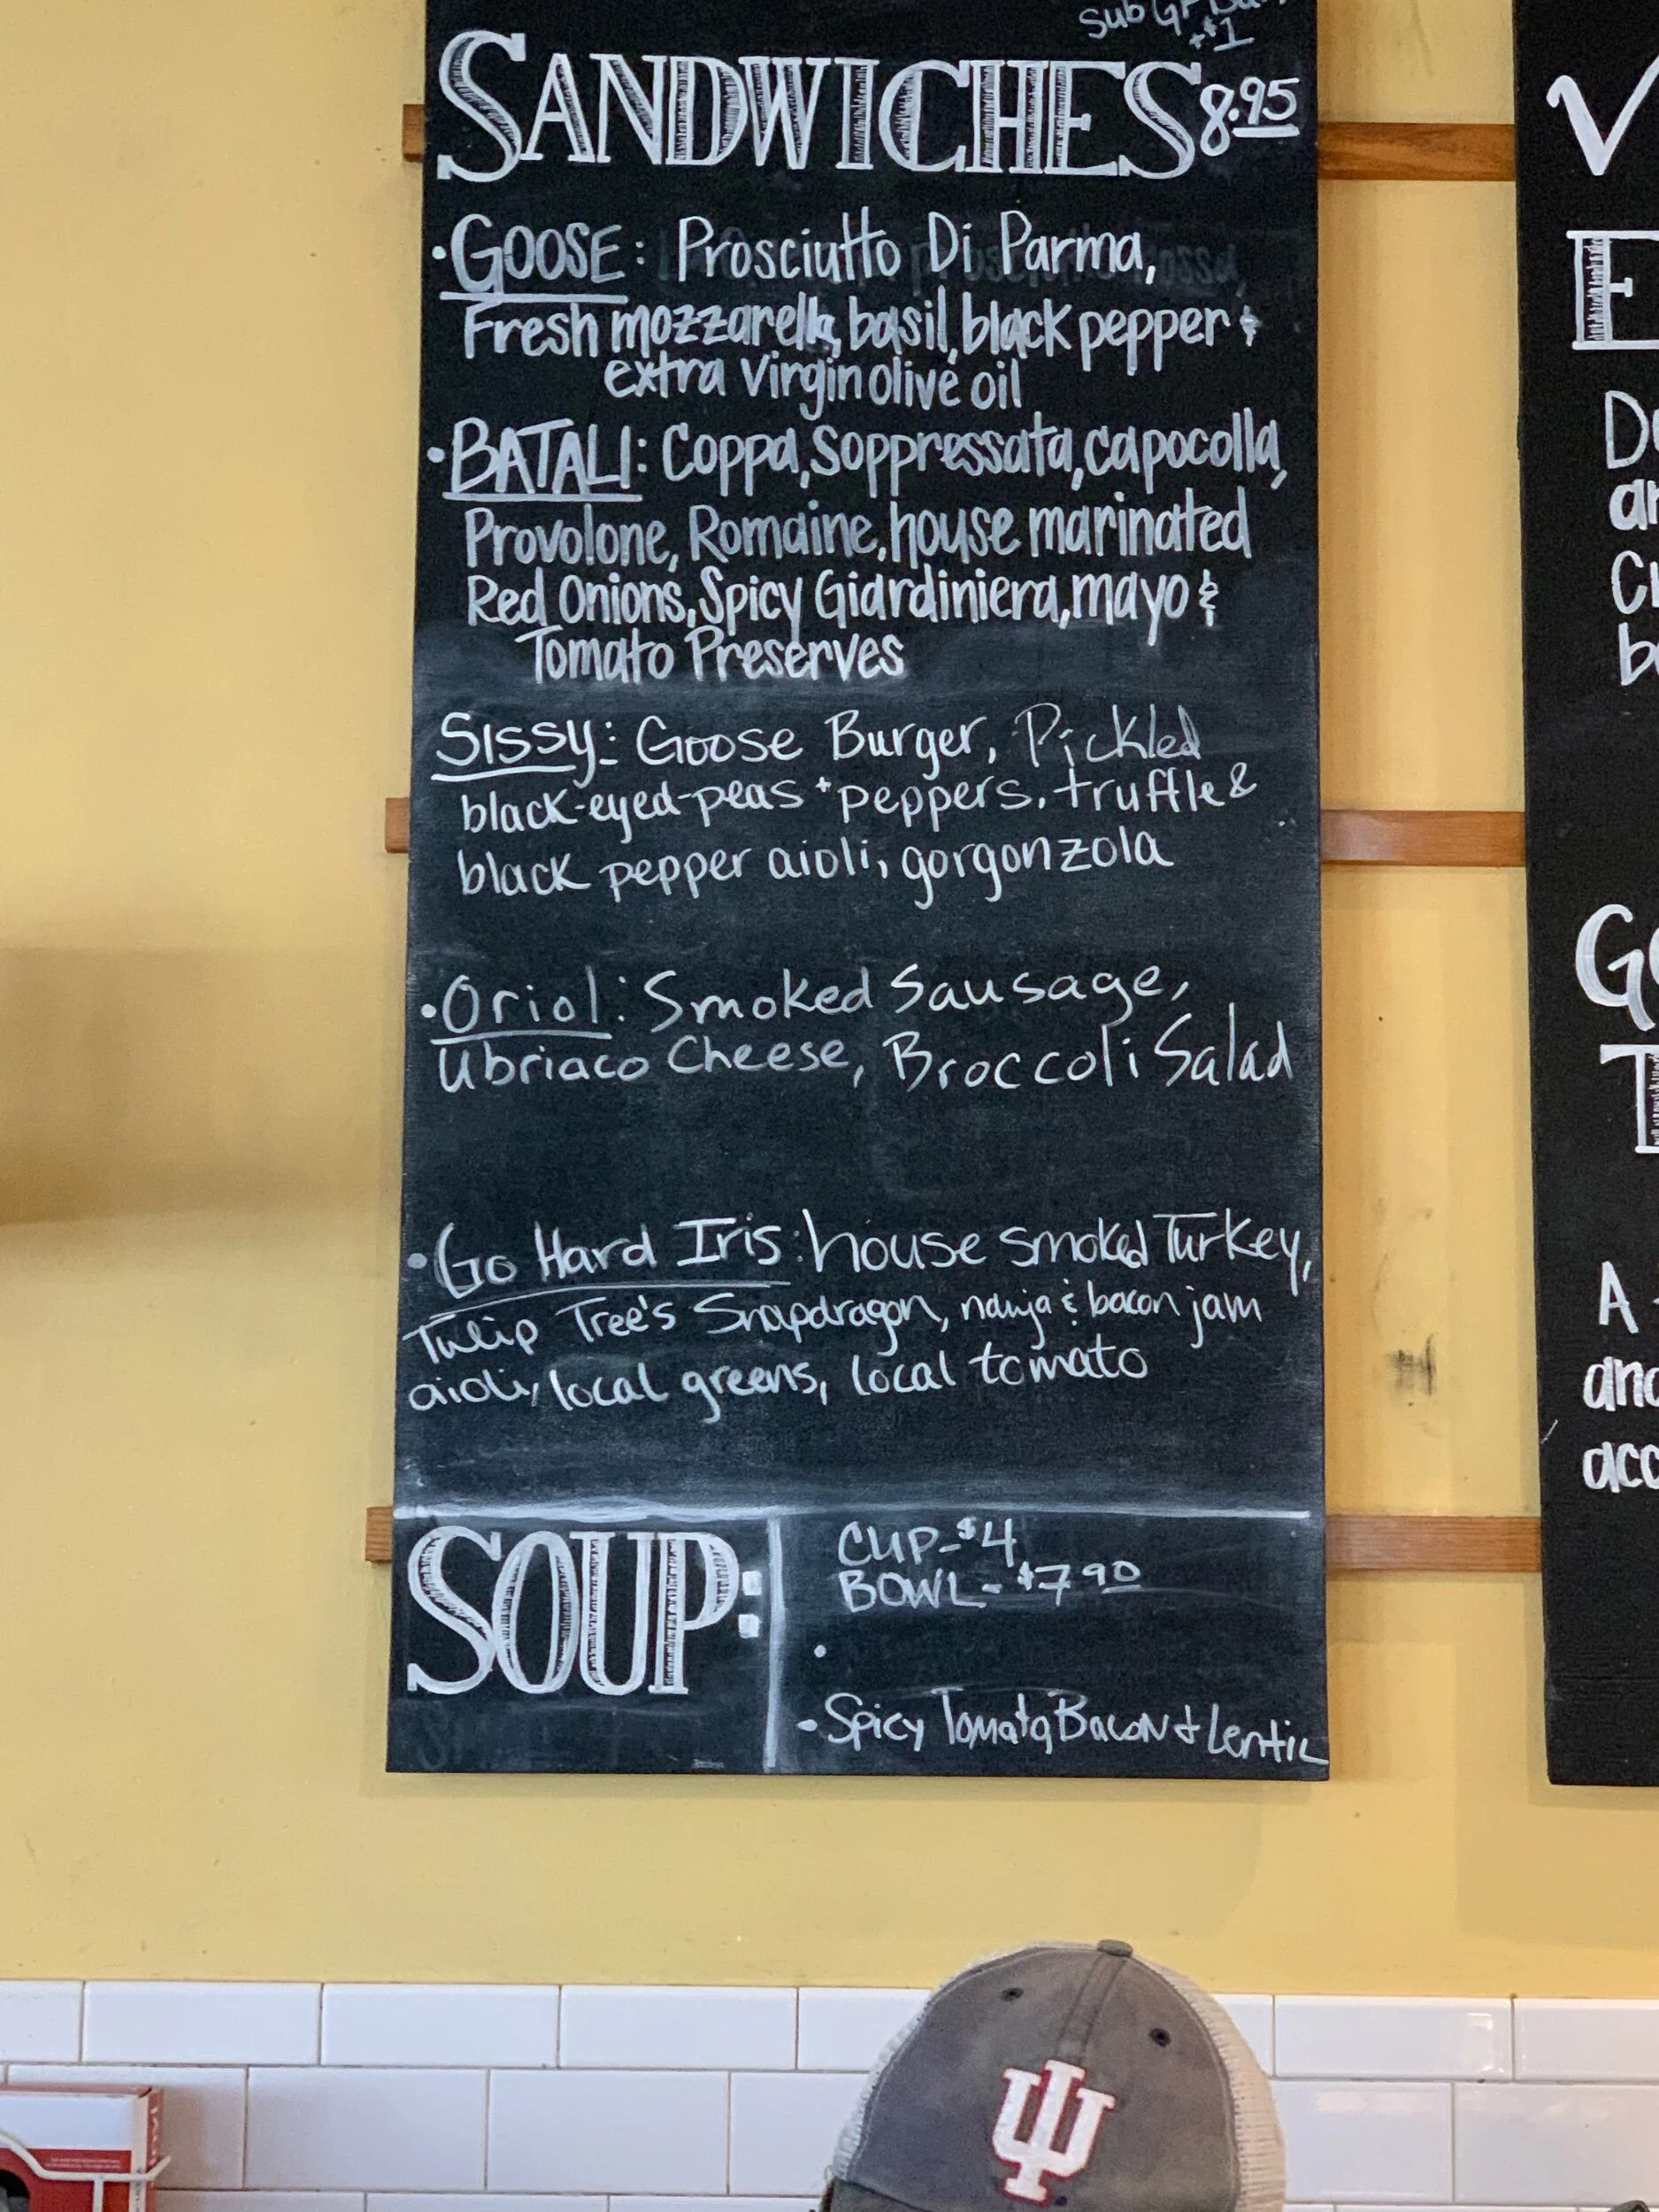 Sub GF Bun
+$1
SANDWICHES 8.95
• GOOSE: Prosciutto Di Parma,
Fresh mozzarella, basil, black pepper &
extra Virgin olive oil
• BATALI: Coppa, Soppressata, capocolla,
Provolone, Romaine, house marinated
Red Onions, Spicy Giardiniera, mayo &
Tomato Preserves
Sissy: Goose Burger, Pickled
black-eyed-peas + peppers, truffle &
black pepper aioli, gorgonzola
• Oriol: Smoked Sausage,
Ubriaco Cheese, Broccoli Salad
• Go Hard Iris: house smoked Turkey,
Tulip Tree's Snapdragon, nduja & bacon jam
aioli, local greens, local tomato
SOUP:
CUP-$4
BOWL-$7.90
•
• Spicy Tomato, Bacon & Lentil
V
E
Do
an
Cr
b
Go
T
A
and
acc
IU